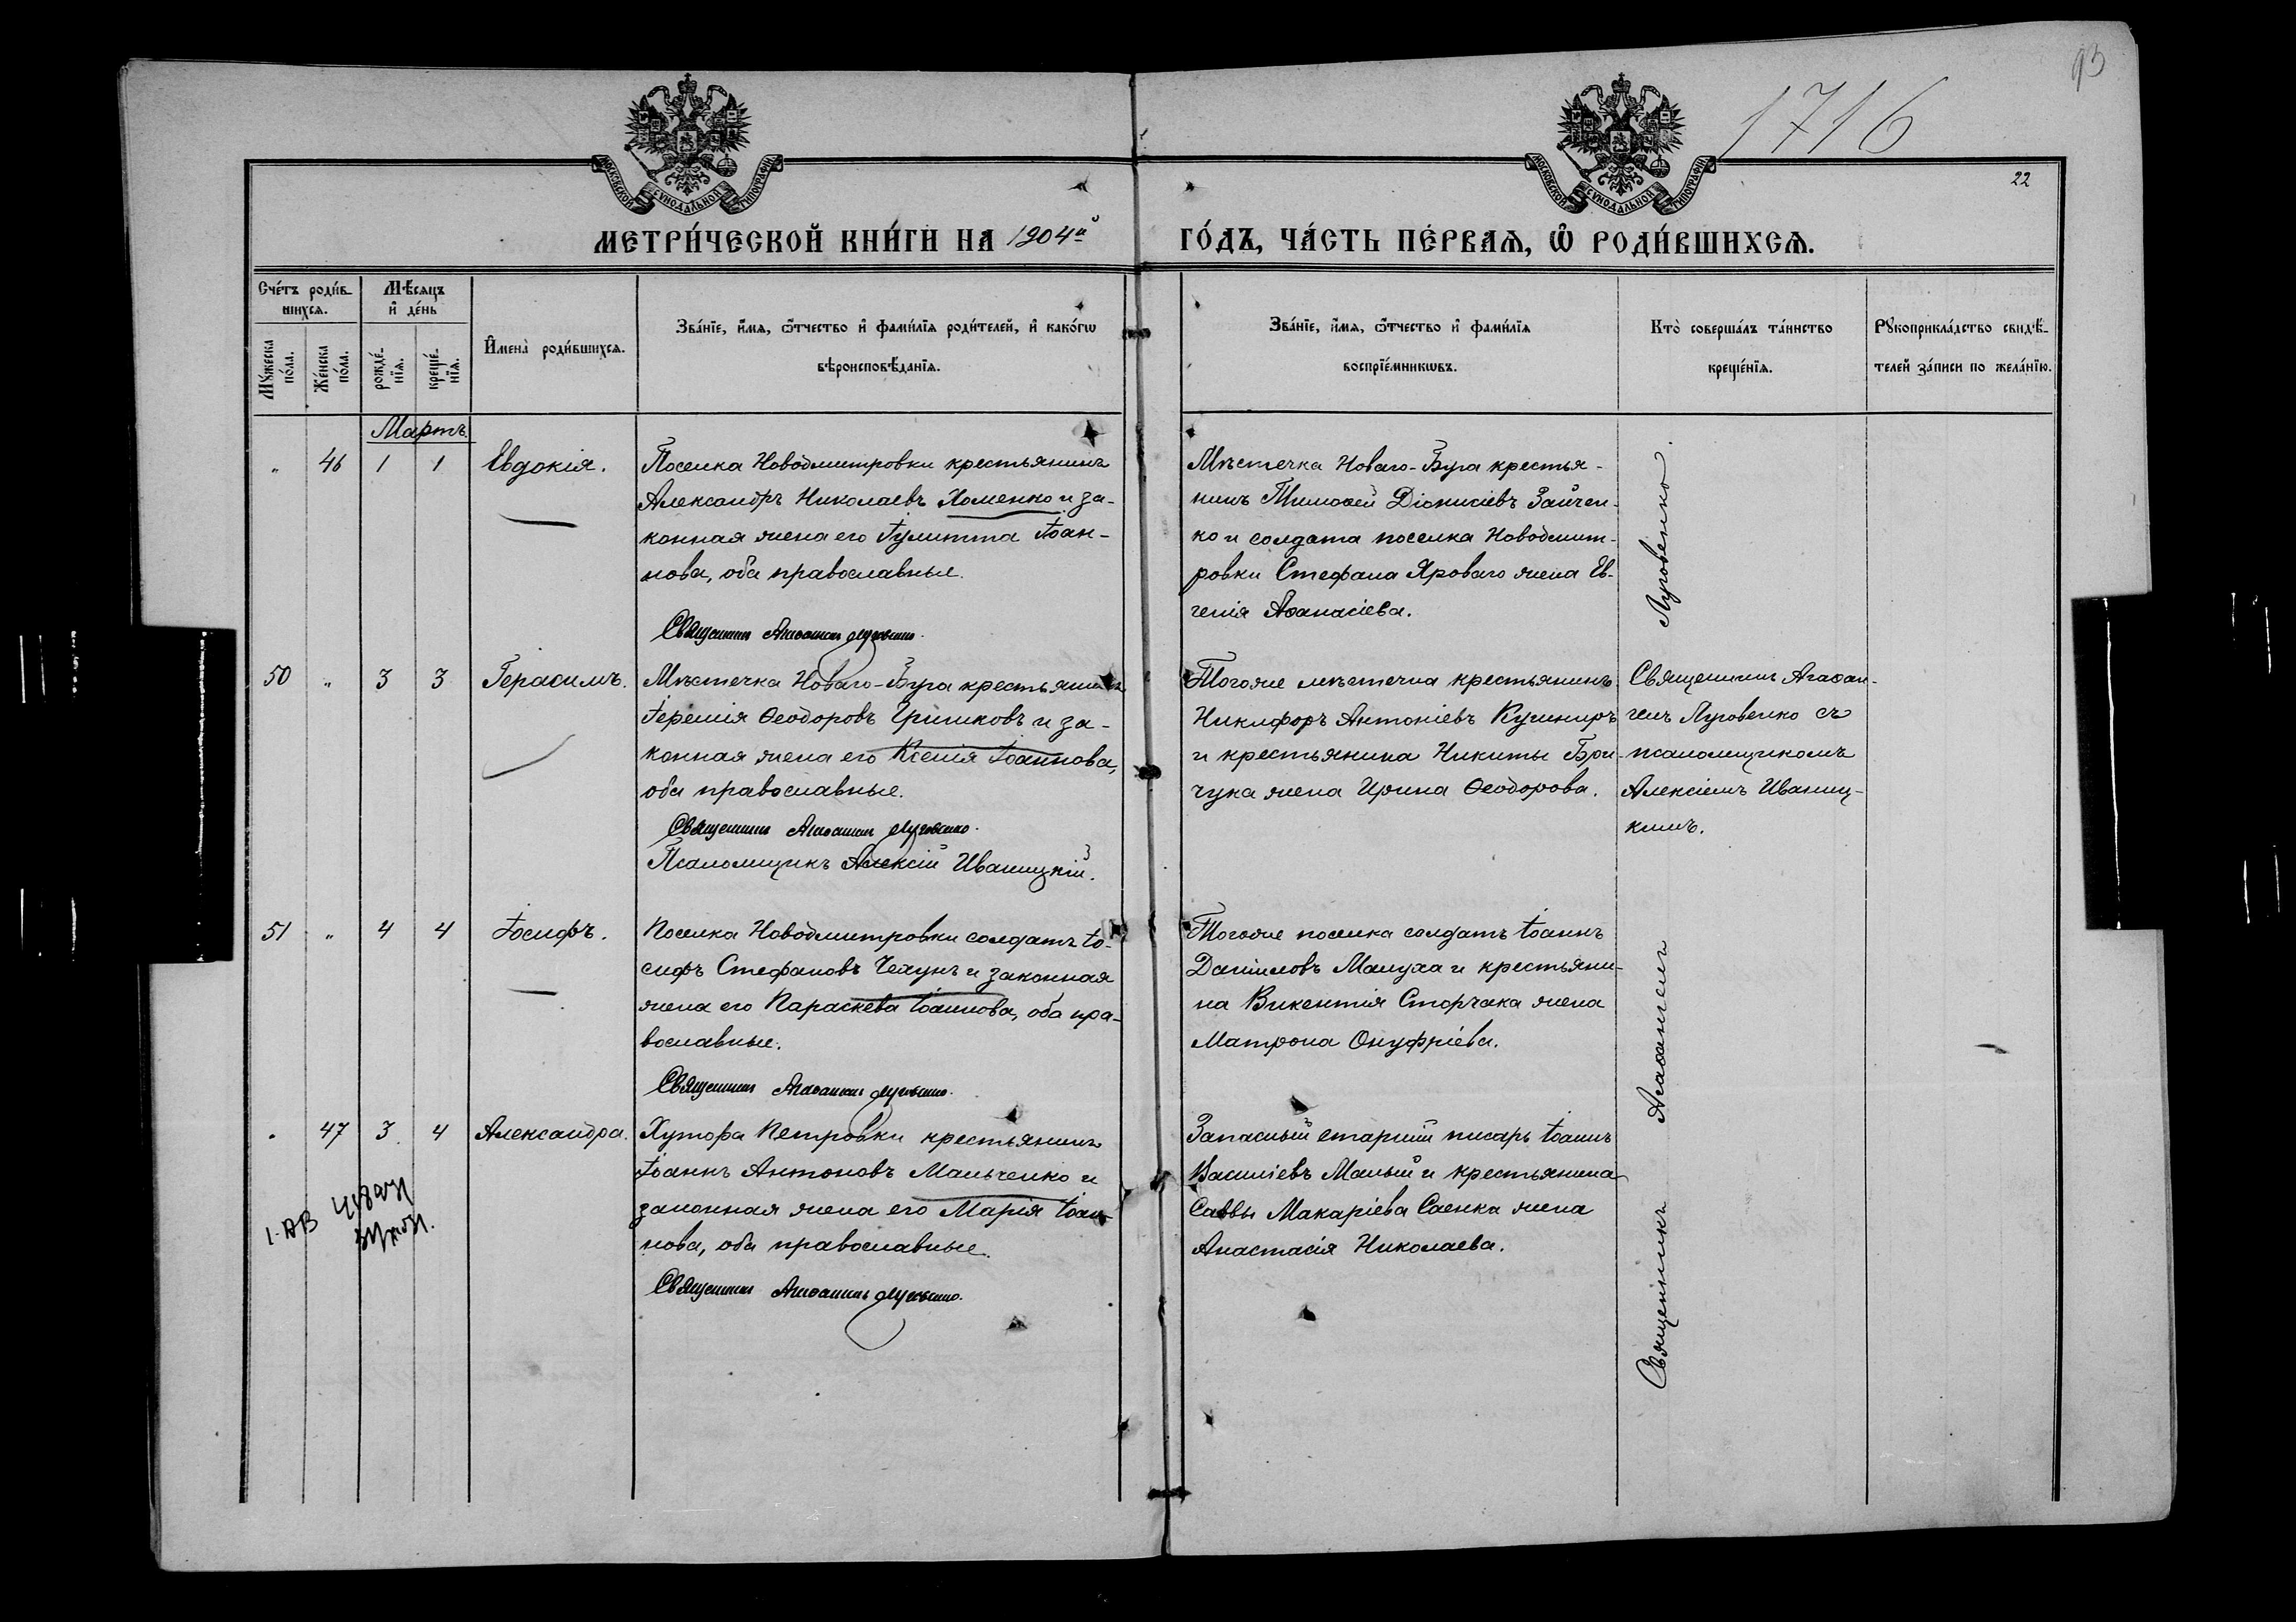 93
1716
22
МОСКОВСКОЙ СѴНОДАЛЬНОЙ ТИПОГРАФІИ
МОСКОВСКОЙ СѴНОДАЛЬНОЙ ТИПОГРАФІИ
МЕТРИ́ЧЕСКОЙ КНИ́ГИ НА 1904й ГО́ДЪ, ЧА́СТЬ ПЕ́РВАѦ, Ѽ РОДИ́ВШИХСѦ.
Сче́тъ роди́в-
шихсѧ.
Мꙋ́жеска по́ла.
Же́нска по́ла.
Мѣ́сѧцъ
и҆ де́нь
рожде́-
нїѧ.
креще́-
нїѧ.
И҆мена̀ роди́вшихсѧ.
Зва́нїе, и҆́мѧ, ѻ҆́тчество и҆ фами́лїѧ роди́телей, и҆ како́гѡ
вѣроисповѣ́данїѧ.
Зва́нїе, и҆́мѧ, ѻ҆́тчество и҆ фами́лїѧ
воспрїе́мникѡвъ.
Кто̀ соверша́лъ та́инство
креще́нїѧ.
Рꙋкоприкла́дство свидѣ́-
телей за́писи по жела́нїю.
Мартъ
" 46 1 1 Евдокія.
Поселка Новодмитровки крестьянинъ
Александръ Николаевъ Хоменко и за-
конная жена его Іулитта Іоан-
нова, оба православные.
Священникъ Агаѳангелъ Луговенко.
Мѣстечка Новаго-Буга крестья-
нинъ Тимоѳей Діонисіевъ Зайчен-
ко и солдата поселка Новодмит-
ровки Стефана Яроваго жена Ев-
генія Аѳанасіева.
50 " 3 3 Герасимъ.
Мѣстечка Новаго-Буга крестьянинъ
Іеремія Ѳеодоровъ Гришковъ и за-
конная жена его Ксенія Іоаннова,
оба православные.
Священникъ Агаѳангелъ Луговенко.
Псаломщикъ Алексій Иваницкій.
Тогоже мѣстечка крестьянинъ
Никифоръ Антоніевъ Кушниръ
и крестьянина Никиты Гри-
чука жена Ирина Ѳеодорова.
Священникъ Агаѳан-
гелъ Луговенко съ
псаломщикомъ
Алексіемъ Иваниц-
кимъ.
51 " 4 4 Іосифъ.
Поселка Новодмитровки солдатъ Іо-
сифъ Стефановъ Чехунъ и законная
жена его Параскева Іоаннова, оба пра-
вославные.
Священникъ Агаѳангелъ Луговенко.
Тогоже поселка солдатъ Іоаннъ
Даніиловъ Мануха и крестьяни-
на Викентія Сторчака жена
Матрона Онуфріева.
" 47 3 4 Александра.
Хутора Петровки крестьянинъ
Іоаннъ Антоновъ Мальченко и
законная жена его Марія Іоан-
нова, оба православные.
Священникъ Агаѳангелъ Луговенко.
Запасный старшій писарь Іоаннъ
Василіевъ Малый и крестьянина
Саввы Макаріева Саенка жена
Анастасія Николаева.
Священникъ Агаѳангелъ Луговенко.
1-АВ